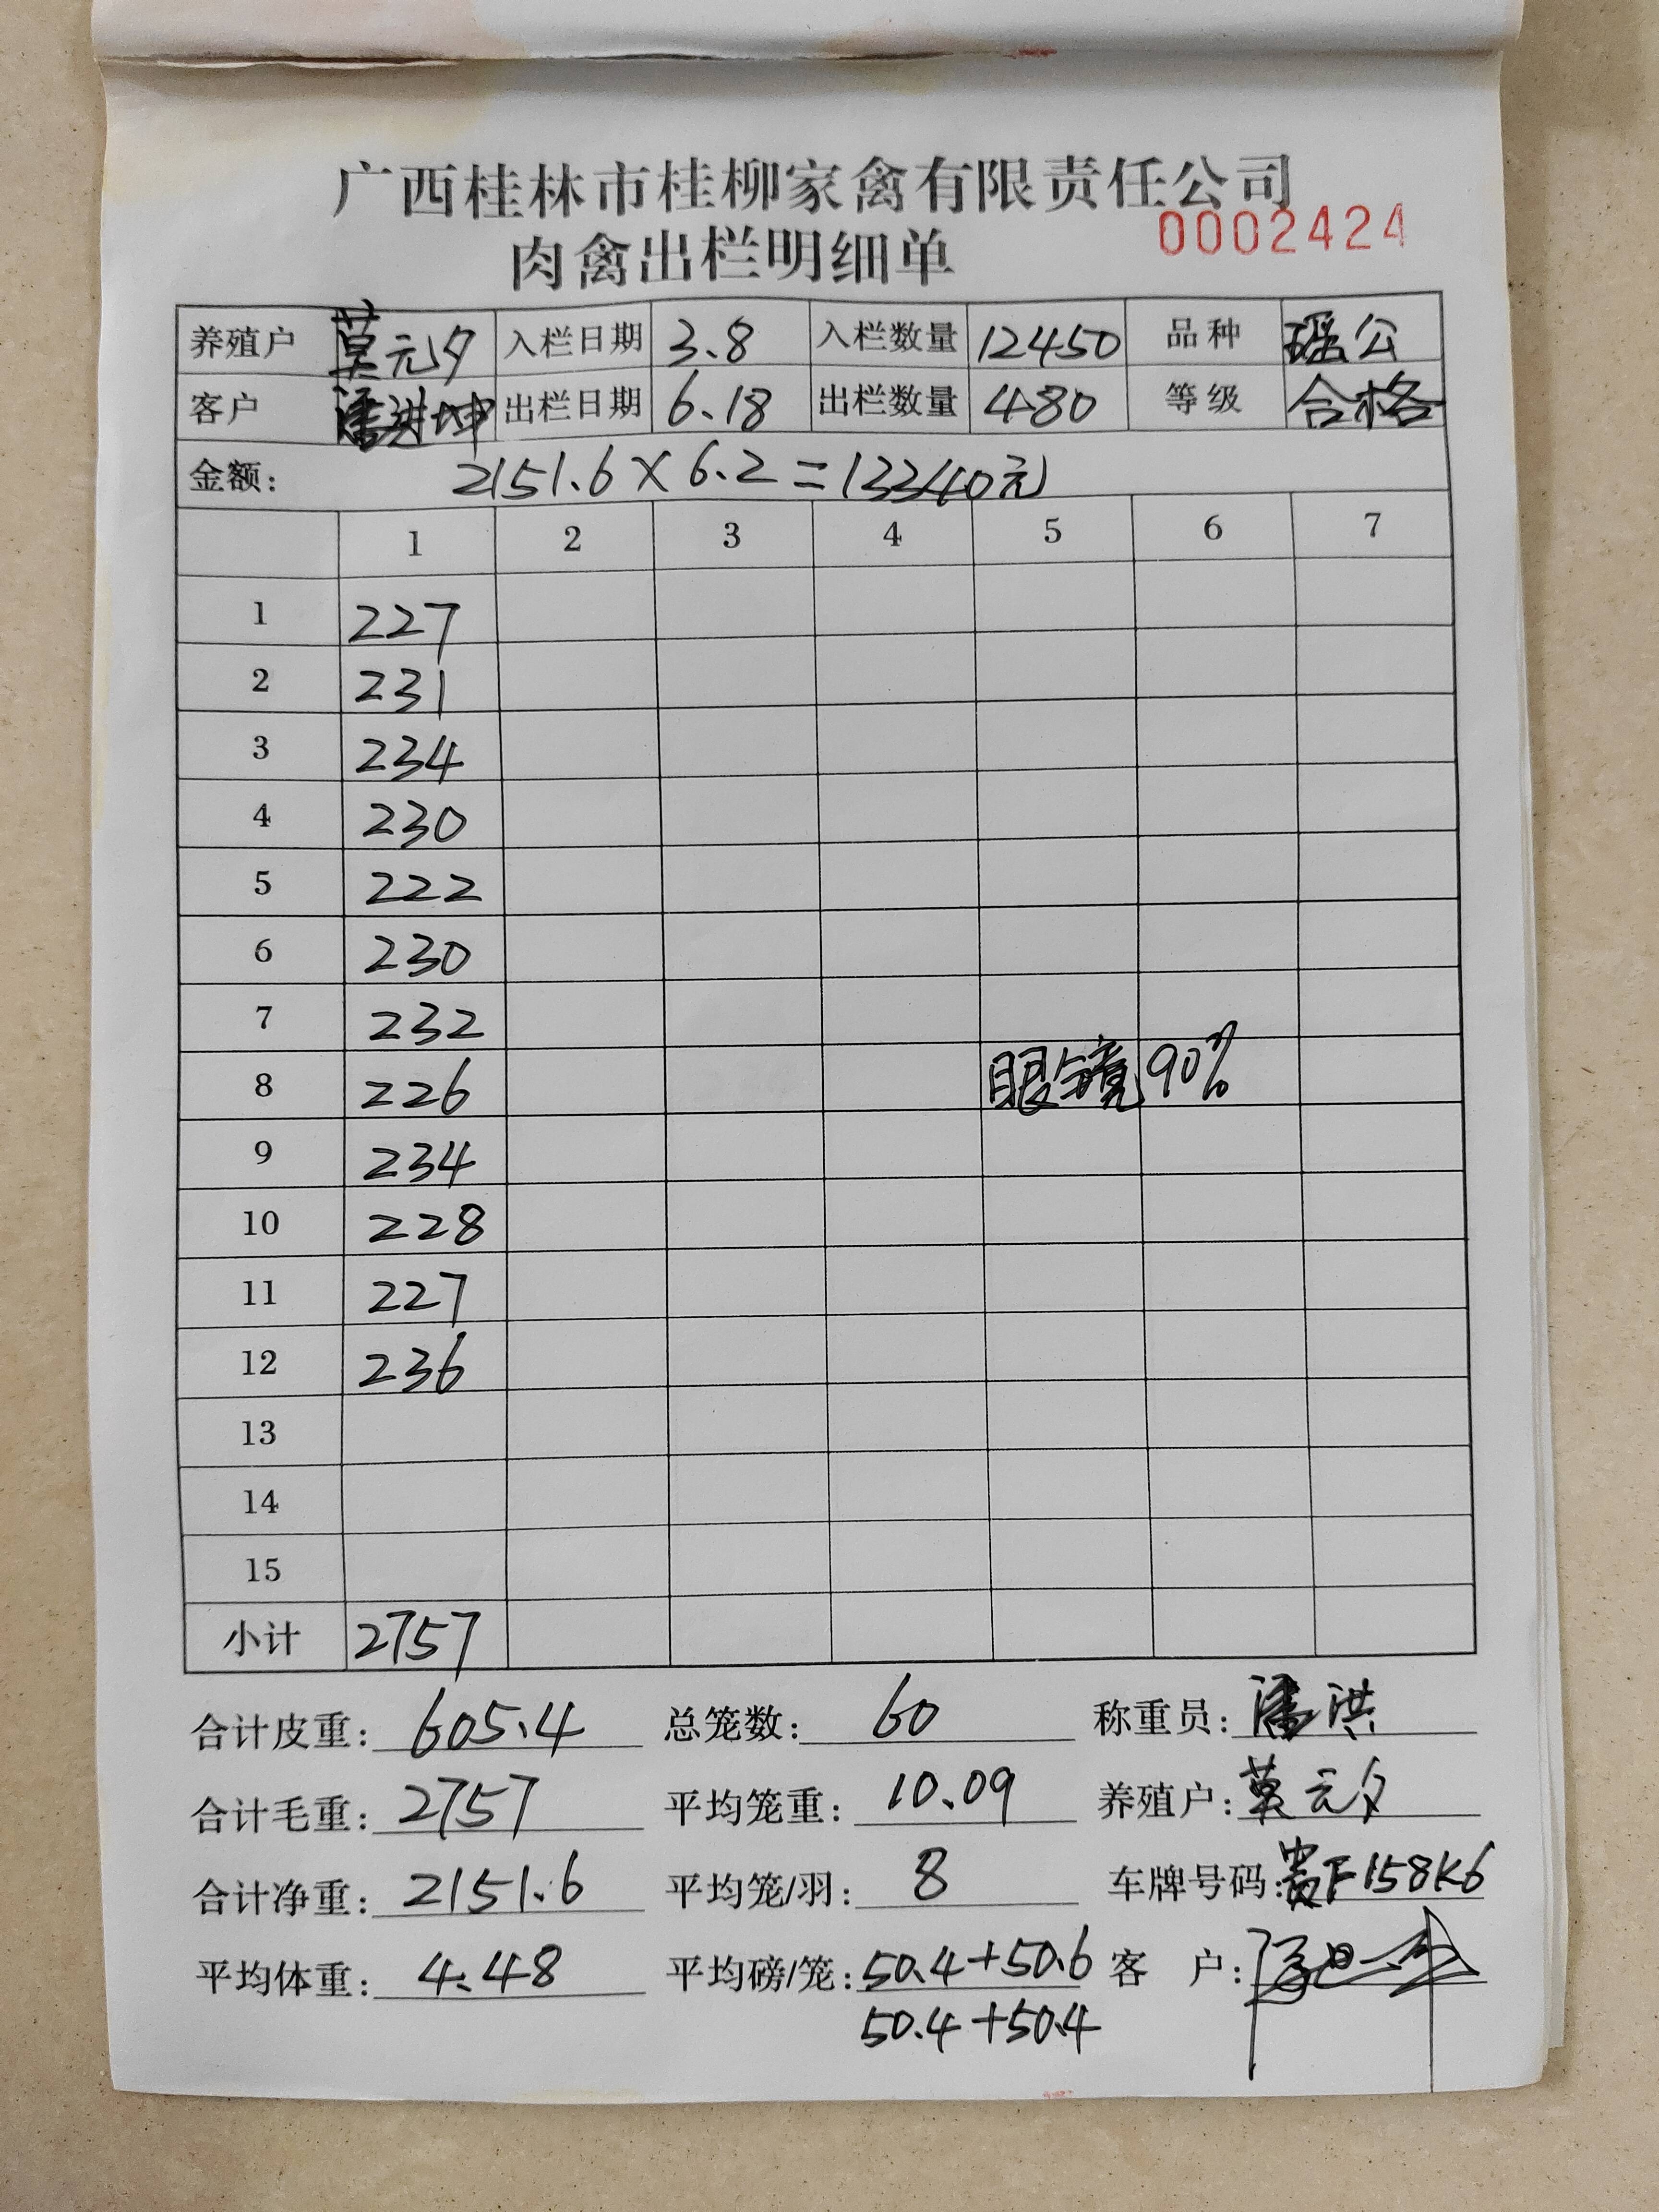 广西桂林市桂柳家禽有限责任公司
肉禽出栏明细单 0002424
养殖户 莫元夕 入栏日期 3.8 入栏数量 12450 品种 瑶公
客户 潘洪坤 出栏日期 6.18 出栏数量 480 等级 合格
金额: 2151.6×6.2=13340元
1 2 3 4 5 6 7
1 227
2 231
3 234
4 230
5 222
6 230
7 232
8 226 眼镜90%
9 234
10 228
11 227
12 236
13
14
15
小计 2757
合计皮重: 605.4 总笼数: 60 称重员: 潘洪
合计毛重: 2757 平均笼重: 10.09 养殖户: 莫元夕
合计净重: 2151.6 平均笼/羽: 8 车牌号码: 贵F158K6
平均体重: 4.48 平均磅/笼: 50.4+50.6 客户:
50.4+50.4